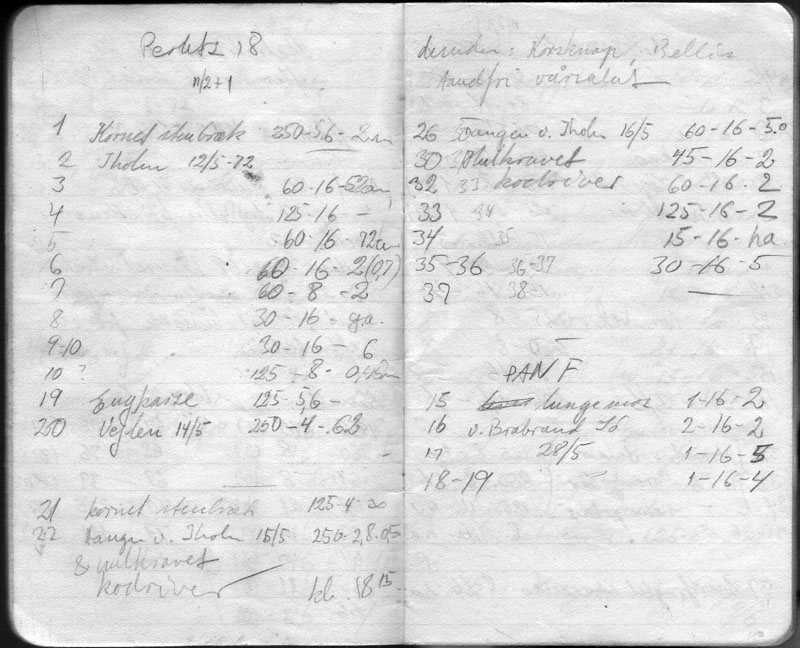 18
n/2+1
1 Kornet stenbræk 250-5,6-2m
2 Tholm 12/5-72
3 60-16-52cm
4 125-16 -
5 60-16-72cm
6 60-16-2(0,7)
7 60-8-2
8 30-16-
9-10 30-16-6
10 ? 125-8-
19 Engkarse 125-5,6-
20 Vejlen 14/5 250-4-
21 kornet stenbræk 125-4-∞
22 tangen v. Tholm 15/5 250-2,8-0,5
& hulkravet
kodriver kl. 18 15
desuden: Korsknap, Bellis
tandfri vårsalat
26 Tangen v. Tholm 16/5 60-16-5.0
30 hulkravet 45-16-2
32 33 kodriver 60-16-2
33 34 125-16-2
34 35 15-16-
35-36 36-37 30-16-5
37 38
PAN F
15 1-16-2
16 v. Brabrand Sø 2-16-2
17 28/5 1-16-5
18-19 1-16-4